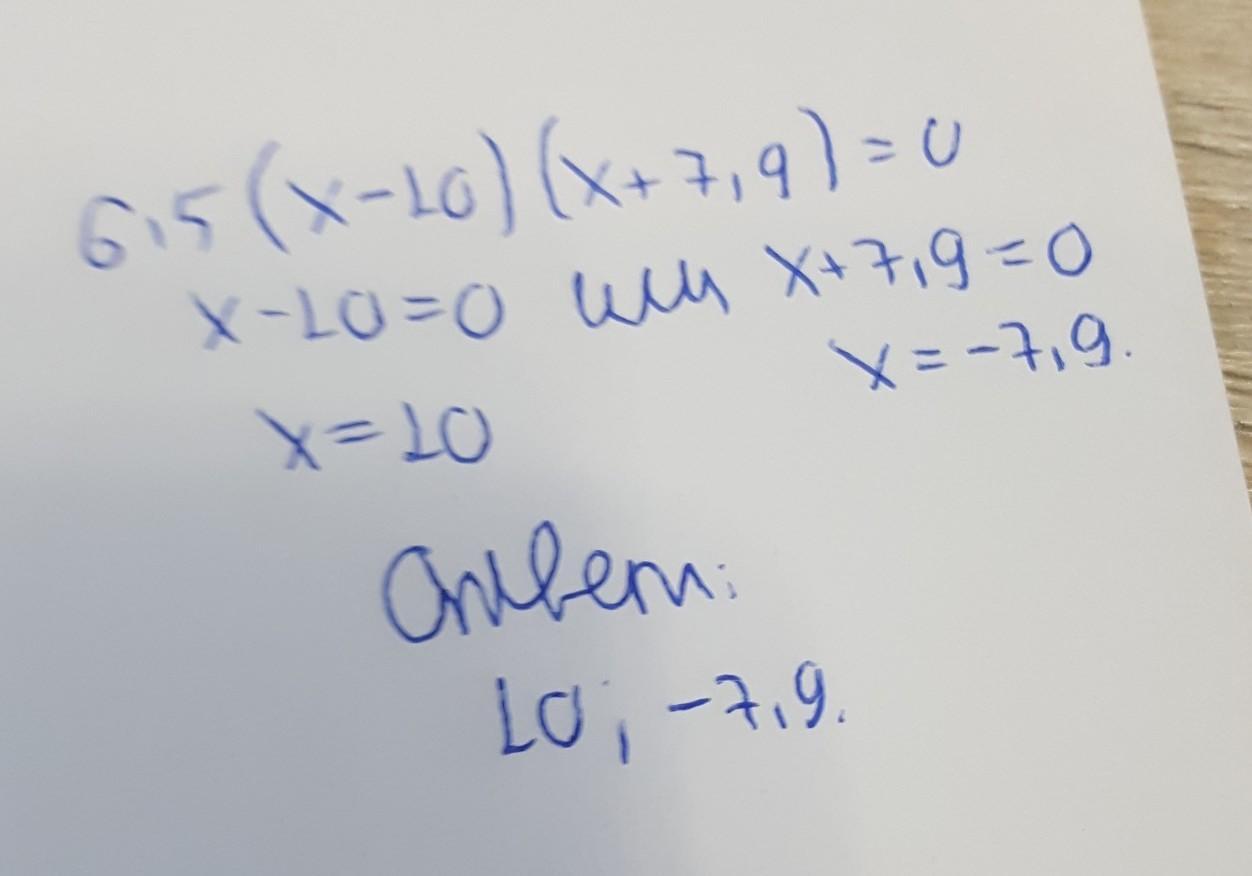 6,5(x-10)(x+7,9)=0
x-10=0 или x+7,9=0
x=10 x=-7,9.
Ответ:
10; -7,9.